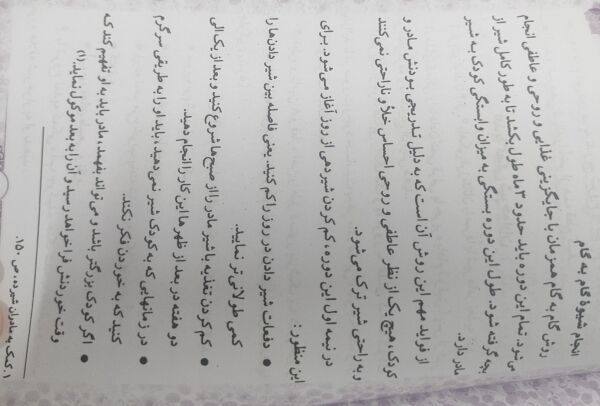 انجام شیوهٔ گام به گام
روش گام به گام همزمان با جایگزینی غذایی و روحی و عاطفی انجام
می‌شود. تمام این دوره باید حدود ۳ ماه طول بکشد تا به طور کامل شیر از
بچه گرفته شود. طول این دوره بستگی به میزان وابستگی کودک به شیر
مادر دارد.
از فواید مهم این روش آن است که به دلیل تدریجی بودنش مادر و
کودک، هیچ یک از نظر عاطفی و روحی احساس خلأ و ناراحتی نمی‌کنند
و به راحتی شیر ترک می‌شود.
در نیمه اول این دوره، کم کردن شیردهی از روز آغاز می‌شود. برای
این منظور:
● دفعات شیر دادن در روز را کم کنید. یعنی فاصله بین شیر دادن‌ها را
کمی طولانی‌تر نمایید.
● کم کردن تغذیه با شیر مادر را از صبح‌ها شروع کنید و بعد از یک الی
دو هفته در بعد از ظهرها این کار را انجام دهید.
● در زمانهایی که به کودک شیر نمی‌دهید، باید او را به طریقی سرگرم
کنید که به خوردن فکر نکند.
● اگر کودک بزرگتر باشد و می‌تواند بفهمد، مادر باید به او تفهیم کند که
وقت خوردنش فرا خواهد رسید و آن را به بعد موکول نماید.(۱)
۱. کمک به مادران شیرده، ص ۱۵۰.